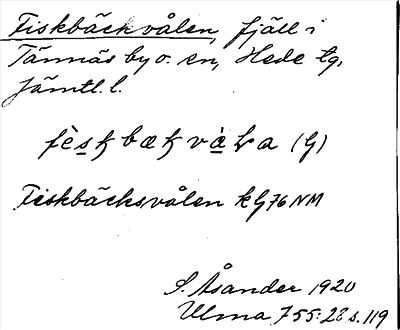 Fiskbäckvålen, fjäll i
Tännäs by o. sn, Hede tg,
Jämtl. l.
Fiskbäcksvålen kG76NM
S. Åsander 1920
Ulma 755:28 s. 119